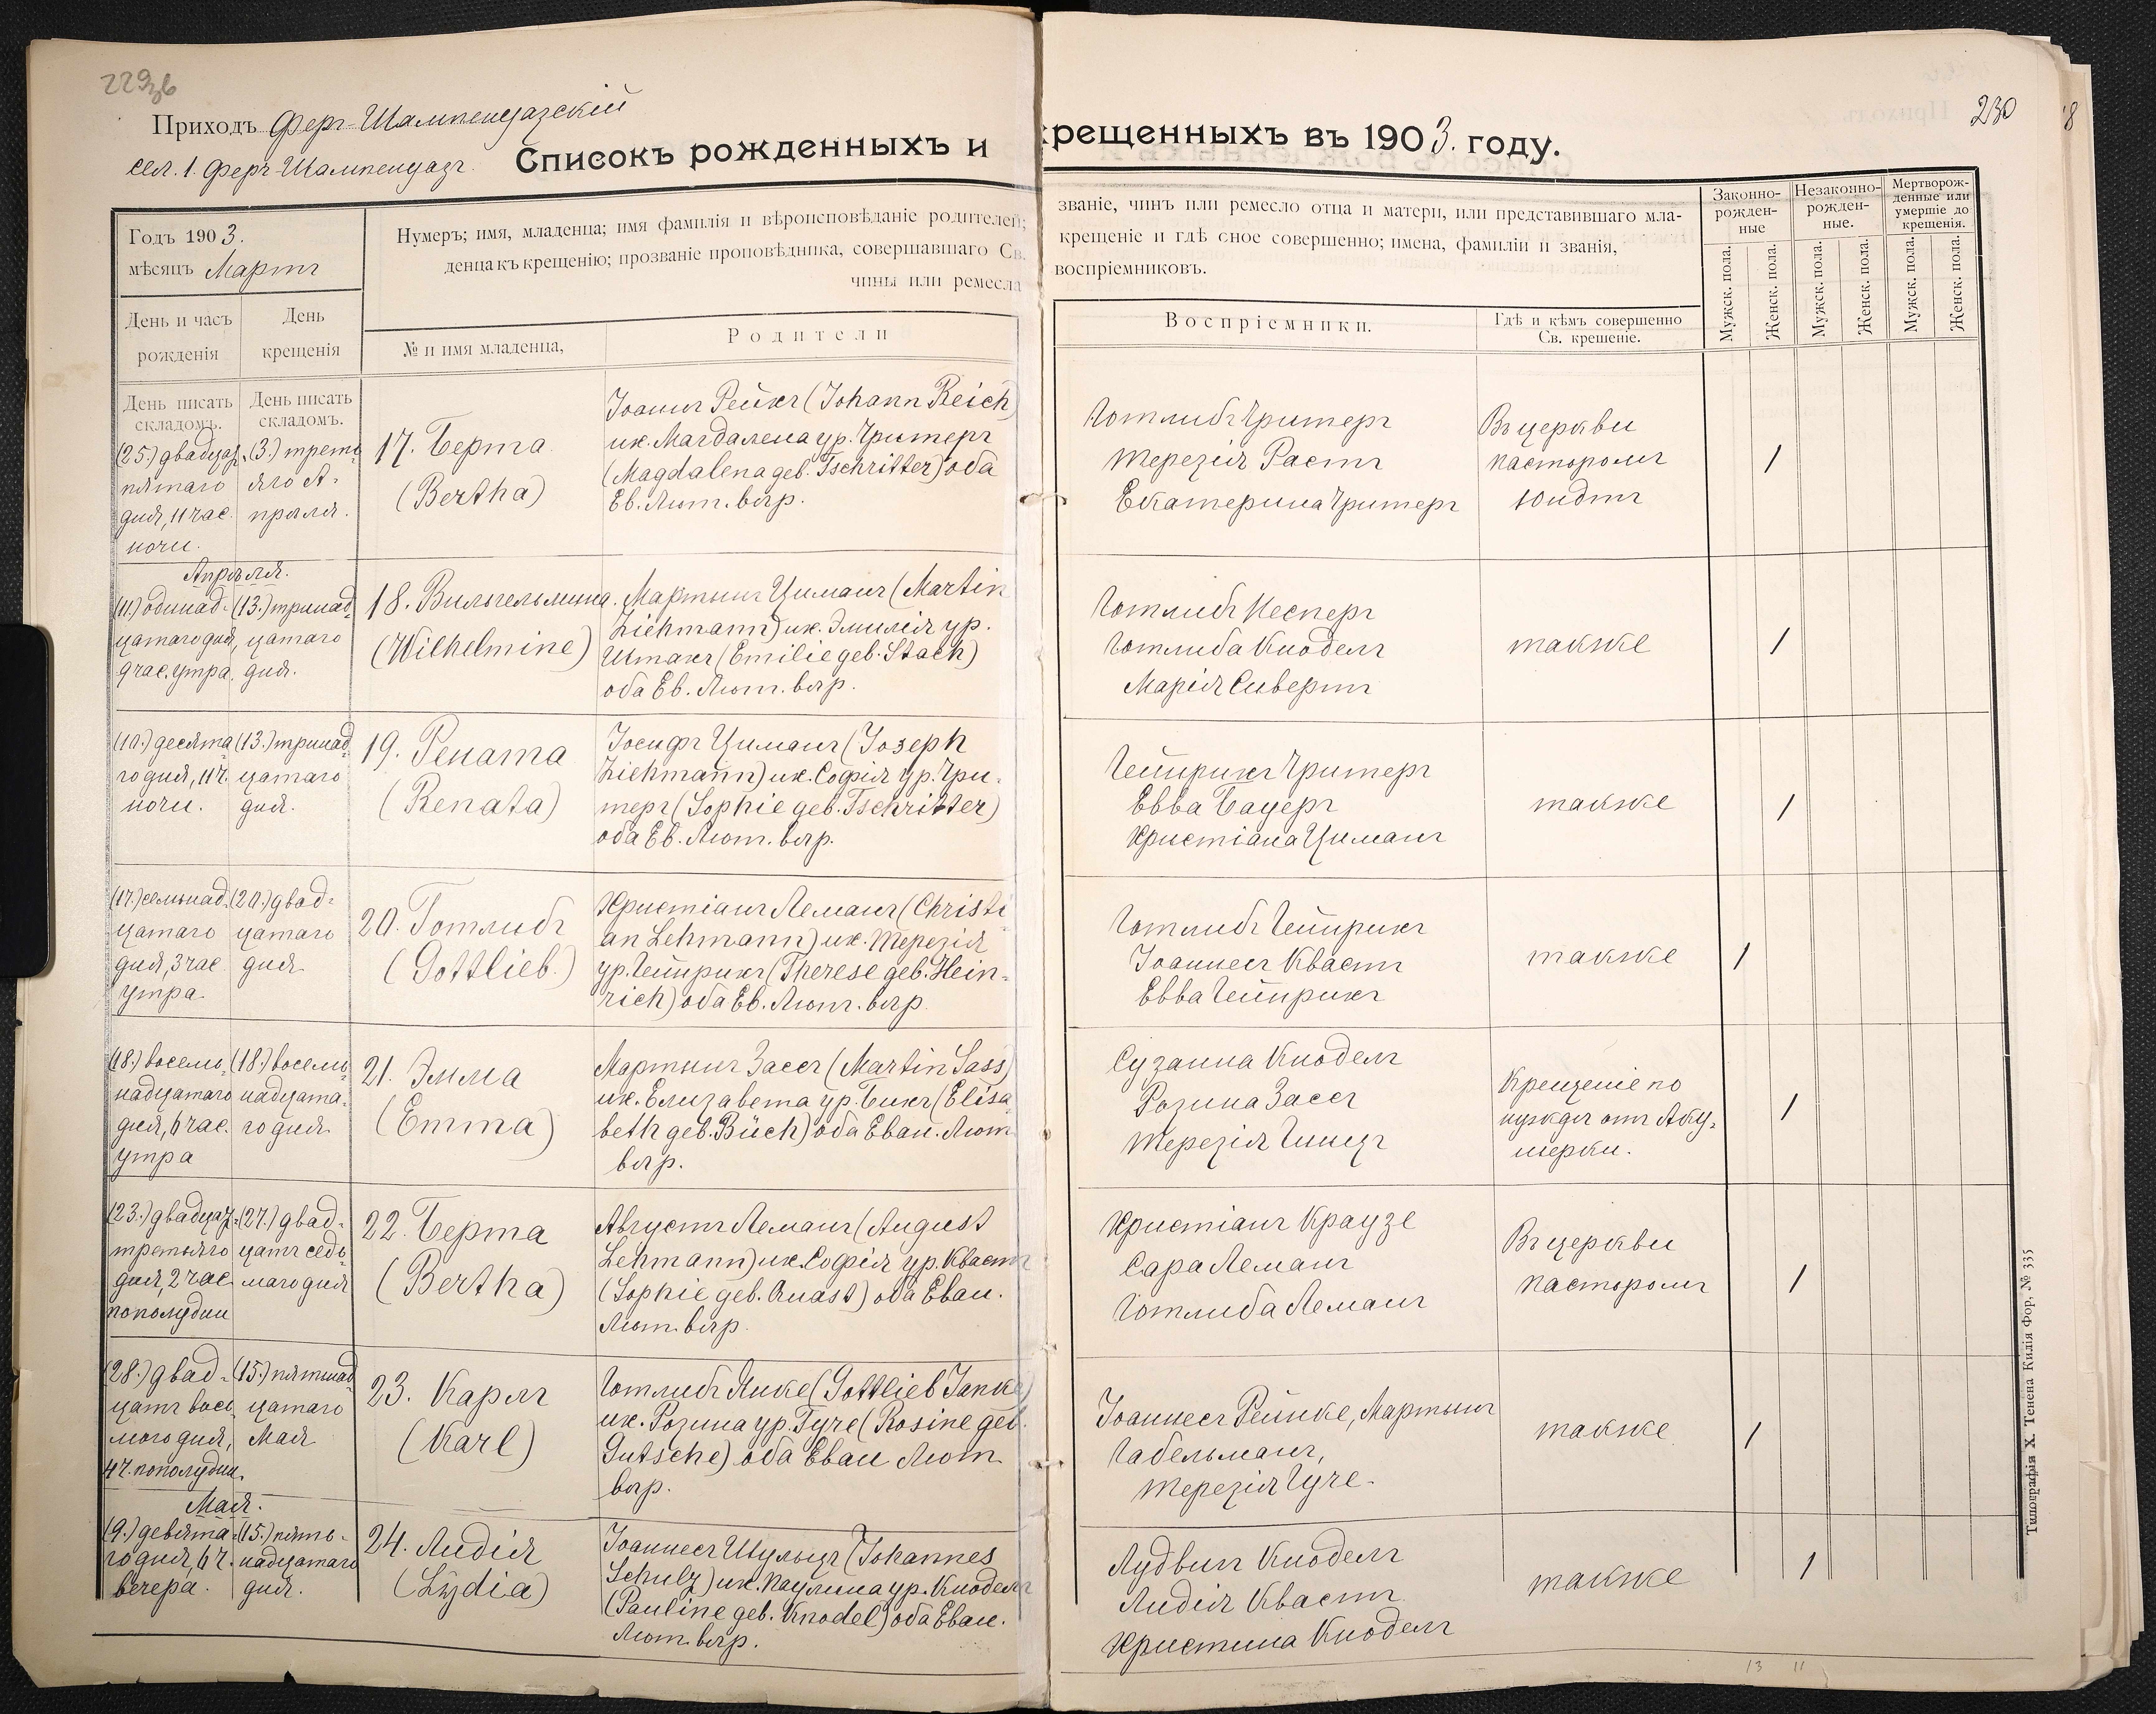 229об
Приходъ Феръ-Шампенуазскій
сел. 1. Феръ-Шампенуазъ.
Списокъ рожденныхъ и крещенныхъ въ 1903. году.
230
8
Годъ 1903.
мѣсяцъ Мартъ
Нумеръ; имя, младенца; имя фамилія и вѣроисповѣданіе родителей; званіе, чинъ или ремесло отца и матери, или представившаго мла-
денца къ крещенію; прозваніе проповѣдника, совершавшаго Св. крещеніе и гдѣ оное совершенно; имена, фамиліи и званія,
чины или ремесла воспріемниковъ.
Законно-
рожден-
ные
Незаконно-
рожден-
ные.
Мертворож-
денные или
умершіе до
крещенія.
День и часъ
рожденія
День
крещенія
№ и имя младенца,
Родители
Воспріемники.
Гдѣ и кѣмъ совершенно
Св. крещеніе.
Мужск. пола.
Женск. пола.
Мужск. пола.
Женск. пола.
Мужск. пола.
Женск. пола.
День писать
складомъ.
День писать
складомъ.
(25.) двадцат-
пятаго
дня, 11 час.
ночи.
(3.) треть-
яго А-
прѣля.
17. Берта
(Bertha)
Іоаннъ Рейхъ (Johann Reich)
иж. Магдалена ур. Чритеръ
(Magdalena geb. Tschritter) оба
Ев. Лют. вѣр.
Готлибъ Чритеръ
Терезія Растъ
Екатерина Чритеръ
Въ церкви
пасторомъ
Юндтъ
/
Апрѣля.
(11.) одинад-
цатаго дня,
9 час. утра.
(13.) тринад-
цатаго
дня.
18. Вильгельмина.
(Wilhelmine)
Мартынъ Циманъ (Martin
Ziehmann) иж. Эмилія ур.
Штахъ (Emilie geb. Stach)
оба Ев. Лют. вѣр.
Готлибъ Несперъ
Готлиба Кнодель
Марія Сивертъ
также
/
(10.) десята-
го дня, 11 ч.
ночи.
(13.) тринад-
цатаго
дня.
19. Рената
(Renata)
Іосифъ Циманъ (Joseph
Ziehmann) иж. Софія ур. Чри-
теръ (Sophie geb. Tschritter)
оба Ев. Лют. вѣр.
Гейнрихъ Чритеръ
Евва Бауеръ
Христіана Циманъ
также
/
(17.) семьнад-
цатаго
дня, 3 час
утра.
(20.) двад-
цатаго
дня
20. Готлибъ
(Gottlieb.)
Христіанъ Леманъ (Christi
an Lehmann) иж. Терезія
ур. Гейнрихъ (Therese geb. Hein-
rich) оба Ев. Лют. вѣр.
Готлибъ Гейнрихъ
Іоаннесъ Квастъ
Евва Гейнрихъ
также
/
(18.) восемь-
надцатаго
дня, 6 час.
утра
(18.) восемь-
надцата-
го дня
21. Эмма
(Emma)
Мартынъ Зассъ (Martin Sass)
иж. Елизавета ур. Бихъ (Elisa-
beth geb. Büch) оба Еван. Лют
вѣр.
Сузанна Кнодель
Розина Зассъ
Терезія Гинцъ
Крещеніе по
нуждѣ отъ Аку-
шерки.
/
(23.) двадцат-
третьяго
дня, 2 час
пополудни
(27.) двад-
цать седь-
маго дня
22. Берта
(Bertha)
Августъ Леманъ (August
Lehmann) иж. Софія ур. Квастъ
(Sophie geb. Quast) оба Еван.
Лют. вѣр.
Христіанъ Краузе
Сара Леманъ
Готлиба Леманъ
Въ церкви
пасторомъ
/
(28.) двад-
цать вось-
мого дня,
4 ч. пополудни.
(15.) пятнад-
цатаго
Мая
23. Карлъ
(Karl)
Готлибъ Янке (Gottlieb Janke)
иж. Розина ур. Гуче (Rosine geb.
Gutsche) оба Еван Лют
вѣр.
Іоаннесъ Рейнке, Мартынъ
Габельманъ,
Терезія Гуче.
также
/
Мая.
(9.) девята-
го дня, 6 ч.
вечера.
(15.) пять-
надцатаго
дня.
24. Лидія
(Lydia)
Іоаннесъ Шульцъ (Johannes
Schulz) иж. Паулина ур. Кнодель
(Pauline geb. Knodel) оба Еван.
Лют. вѣр.
Лудвигъ Кнодель
Лидія Квастъ
Христина Кнодель
также
/
13 11
Типографія Х. Тенена Килія Фор, № 335